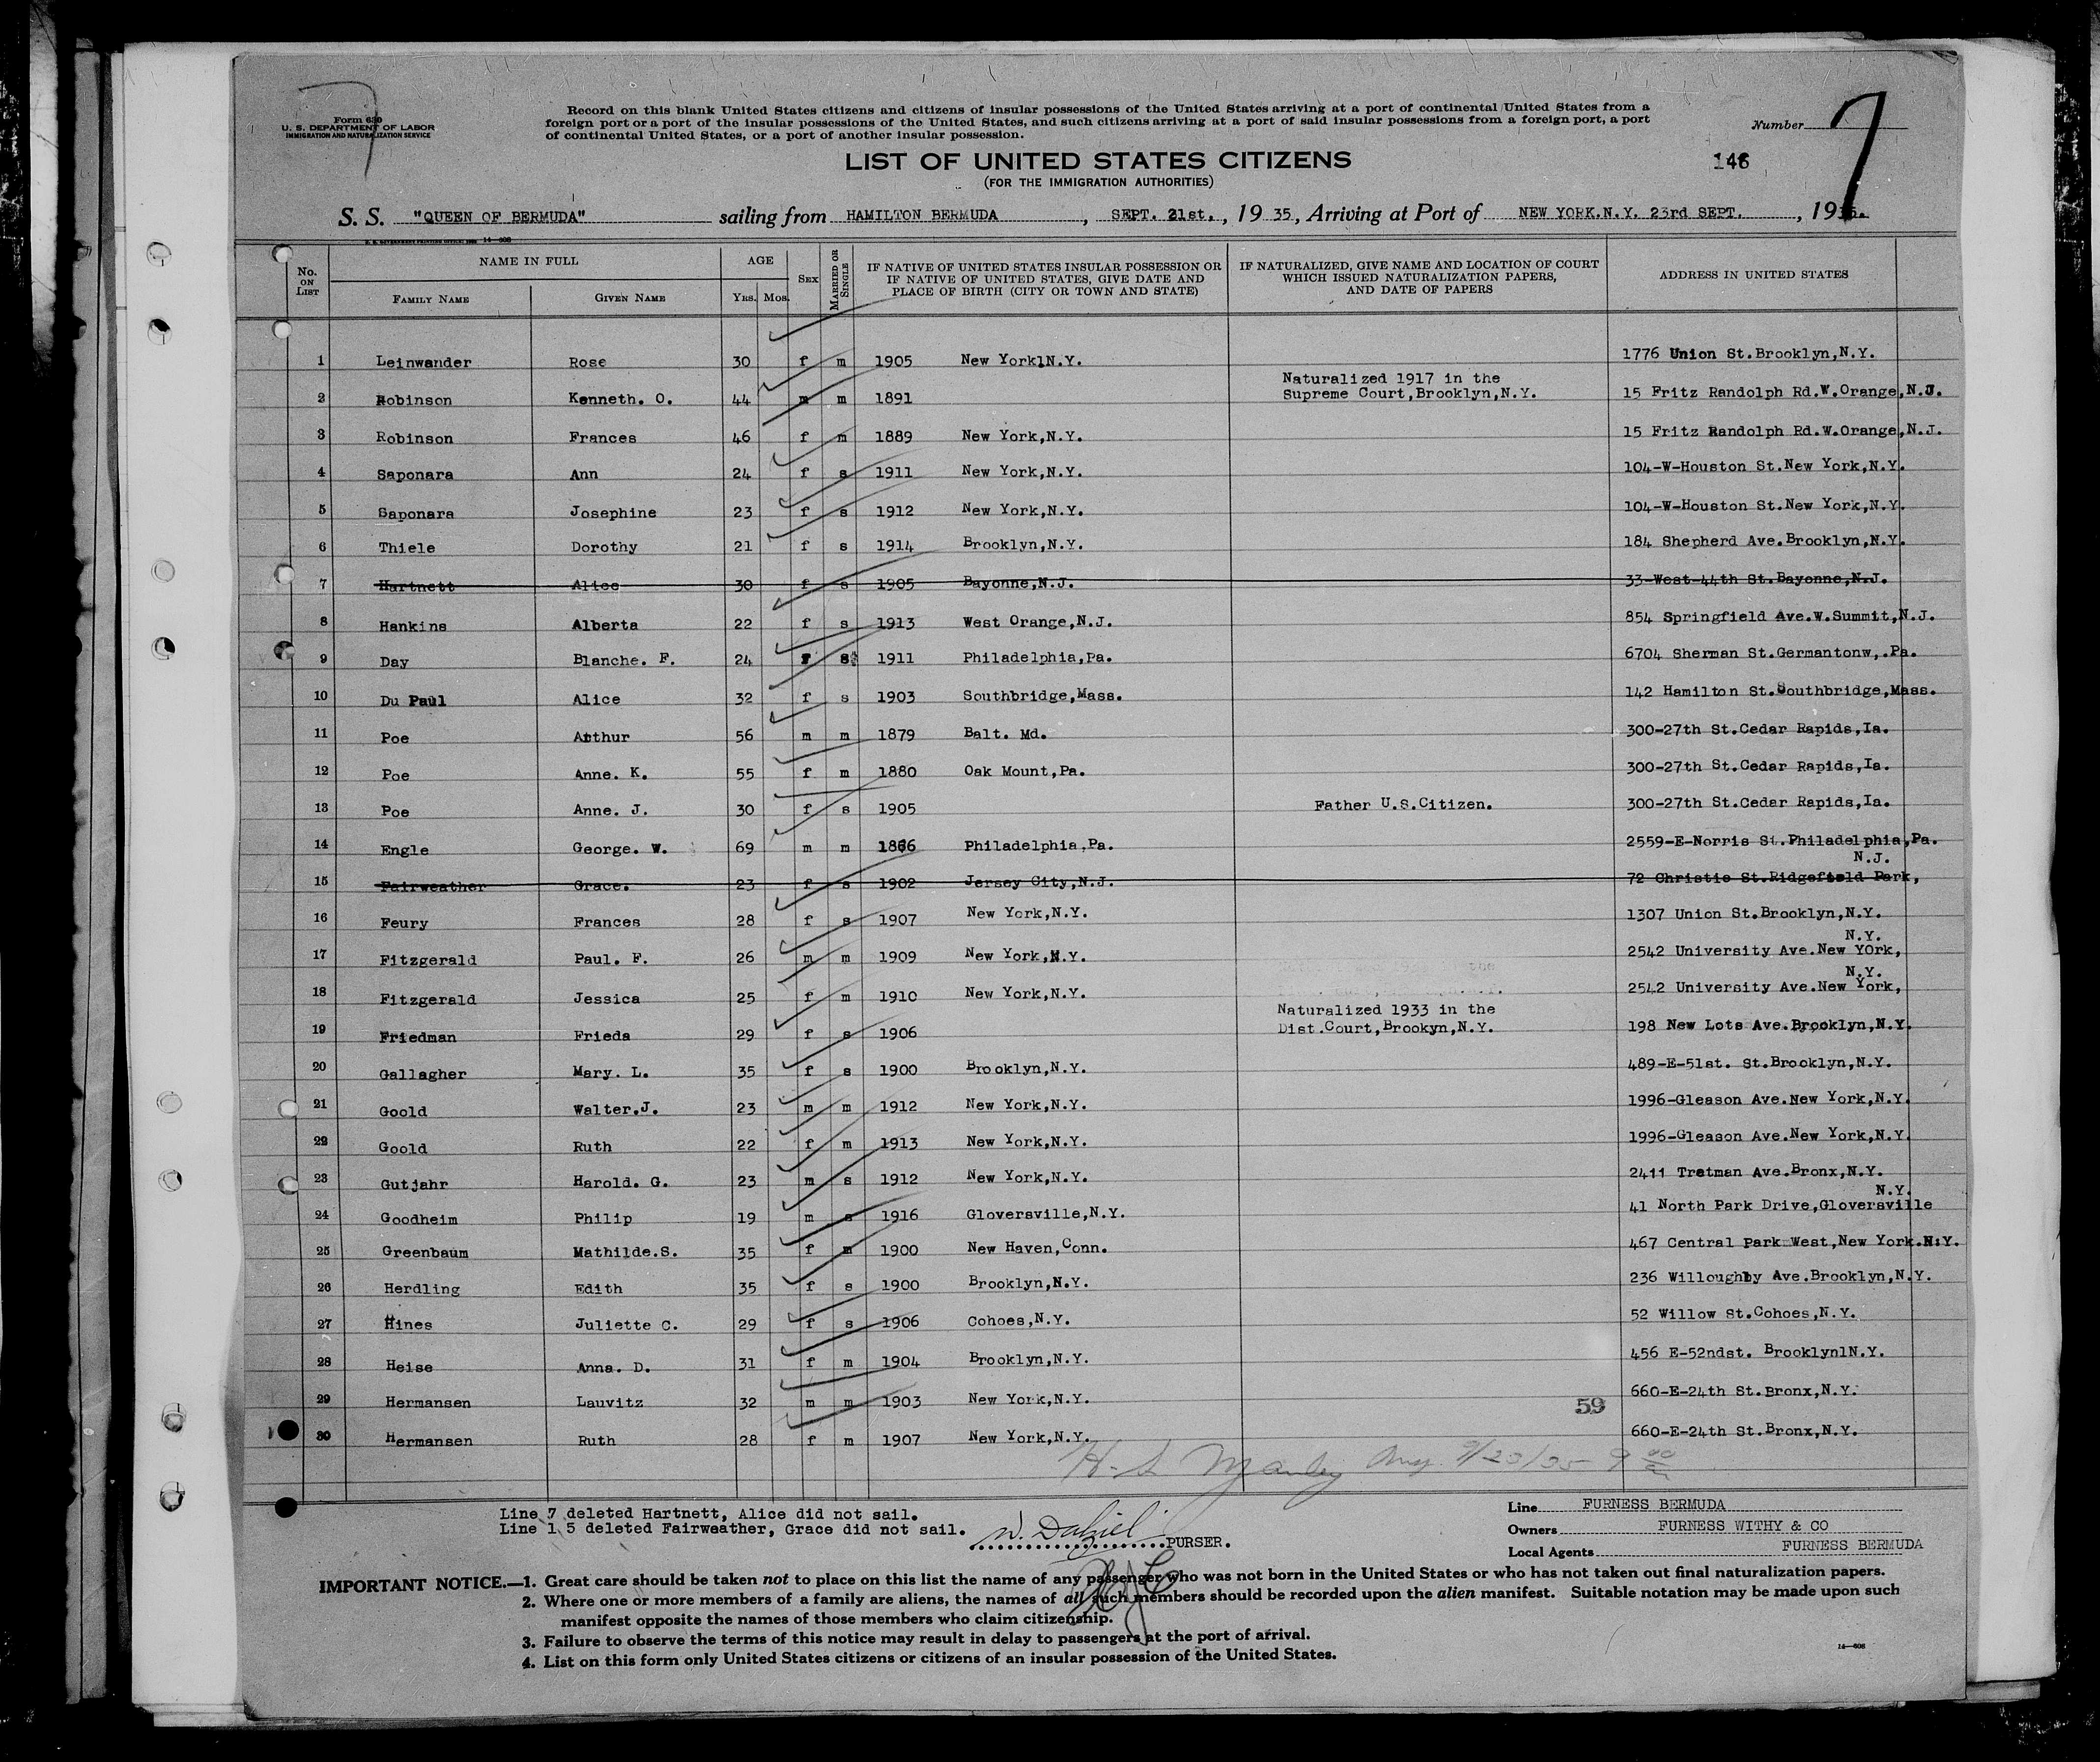 Form 630
U. S. DEPARTMENT OF LABOR
IMMIGRATION AND NATURALIZATION SERVICE
Record on this blank United States citizens and citizens of insular possessions of the United States arriving at a port of continental United States from a
foreign port or a port of the insular possessions of the United States, and such citizens arriving at a port of said insular possessions from a foreign port, a port
of continental United States, or a port of another insular possession.
Number 7
LIST OF UNITED STATES CITIZENS
146
(FOR THE IMMIGRATION AUTHORITIES)
S. S. "QUEEN OF BERMUDA" sailing from HAMILTON BERMUDA, SEPT. 21st., 19 35, Arriving at Port of NEW YORK.N.Y. 23rd SEPT., 1935.
No. ON LIST NAME IN FULL FAMILY NAME GIVEN NAME AGE YRS. MOS. SEX MARRIED OR SINGLE IF NATIVE OF UNITED STATES INSULAR POSSESSION OR IF NATIVE OF UNITED STATES, GIVE DATE AND PLACE OF BIRTH (CITY OR TOWN AND STATE) IF NATURALIZED, GIVE NAME AND LOCATION OF COURT WHICH ISSUED NATURALIZATION PAPERS, AND DATE OF PAPERS ADDRESS IN UNITED STATES
1 Leinwander Rose 30 f m 1905 New York1N.Y. 1776 Union St.Brooklyn,N.Y.
2 Robinson Kenneth. O. 44 m m 1891 Naturalized 1917 in the Supreme Court,Brooklyn,N.Y. 15 Fritz Randolph Rd.W.Orange,N.J.
3 Robinson Frances 46 f m 1889 New York,N.Y. 15 Fritz Randolph Rd.W.Orange,N.J.
4 Saponara Ann 24 f s 1911 New York,N.Y. 104-W-Houston St.New York,N.Y.
5 Saponara Josephine 23 f s 1912 New York,N.Y. 104-W-Houston St.New York,N.Y.
6 Thiele Dorothy 21 f s 1914 Brooklyn,N.Y. 184 Shepherd Ave.Brooklyn,N.Y.
7 Hartnett Alice 30 f s 1905 Bayonne,N.J. 33-West-44th St.Bayonne,N.J.
8 Hankins Alberta 22 f s 1913 West Orange,N.J. 854 Springfield Ave.W.Summit,N.J.
9 Day Blanche. F. 24 f s 1911 Philadelphia,Pa. 6704 Sherman St.Germantonw,.Pa.
10 Du Paul Alice 32 f s 1903 Southbridge,Mass. 142 Hamilton St.Southbridge,Mass.
11 Poe Arthur 56 m m 1879 Balt. Md. 300-27th St.Cedar Rapids,Ia.
12 Poe Anne. K. 55 f m 1880 Oak Mount,Pa. 300-27th St.Cedar Rapids,Ia.
13 Poe Anne. J. 30 f s 1905 Father U.S.Citizen. 300-27th St.Cedar Rapids,Ia.
14 Engle George. W. 69 m m 1866 Philadelphia,Pa. 2559-E-Norris St.Philadelphia,Pa.
15 Fairweather Grace. 23 f s 1902 Jersey City,N.J. 72 Christie St.Ridgefield Park, N.J.
16 Feury Frances 28 f s 1907 New York,N.Y. 1307 Union St.Brooklyn,N.Y.
17 Fitzgerald Paul. F. 26 m m 1909 New York,N.Y. 2542 University Ave.New YOrk, N.Y.
18 Fitzgerald Jessica 25 f m 1910 New York,N.Y. 2542 University Ave.New York, N.Y.
19 Friedman Frieda 29 f s 1906 Naturalized 1933 in the Dist.Court,Brookyn,N.Y. 198 New Lots Ave.Brooklyn,N.Y.
20 Gallagher Mary. L. 35 f s 1900 Brooklyn,N.Y. 489-E-51st. St.Brooklyn,N.Y.
21 Goold Walter.J. 23 m m 1912 New York,N.Y. 1996-Gleason Ave.New York,N.Y.
22 Goold Ruth 22 f m 1913 New York,N.Y. 1996-Gleason Ave.New York,N.Y.
23 Gutjahr Harold. G. 23 m s 1912 New York,N.Y. 2411 Tratman Ave.Bronx,N.Y.
24 Goodheim Philip 19 m s 1916 Gloversville,N.Y. 41 North Park Drive,Gloversville N.Y.
25 Greenbaum Mathilde.S. 35 f m 1900 New Haven,Conn. 467 Central Park West,New York.N.Y.
26 Herdling Edith 35 f s 1900 Brooklyn,N.Y. 236 Willoughby Ave.Brooklyn,N.Y.
27 Hines Juliette C. 29 f s 1906 Cohoes,N.Y. 52 Willow St.Cohoes,N.Y.
28 Heise Anna. D. 31 f m 1904 Brooklyn,N.Y. 456 E-52ndst. Brooklyn1N.Y.
29 Hermansen Lauvitz 32 m m 1903 New York,N.Y. 660-E-24th St.Bronx,N.Y.
59
30 Hermansen Ruth 28 f m 1907 New York,N.Y. 660-E-24th St.Bronx,N.Y.
Line 7 deleted Hartnett, Alice did not sail.
Line 1 5 deleted Fairweather, Grace did not sail.
PURSER.
Line FURNESS BERMUDA
Owners FURNESS WITHY & CO
Local Agents FURNESS BERMUDA
IMPORTANT NOTICE.—1. Great care should be taken not to place on this list the name of any passenger who was not born in the United States or who has not taken out final naturalization papers.
2. Where one or more members of a family are aliens, the names of all such members should be recorded upon the alien manifest. Suitable notation may be made upon such
manifest opposite the names of those members who claim citizenship.
3. Failure to observe the terms of this notice may result in delay to passengers at the port of arrival.
4. List on this form only United States citizens or citizens of an insular possession of the United States.
14—608